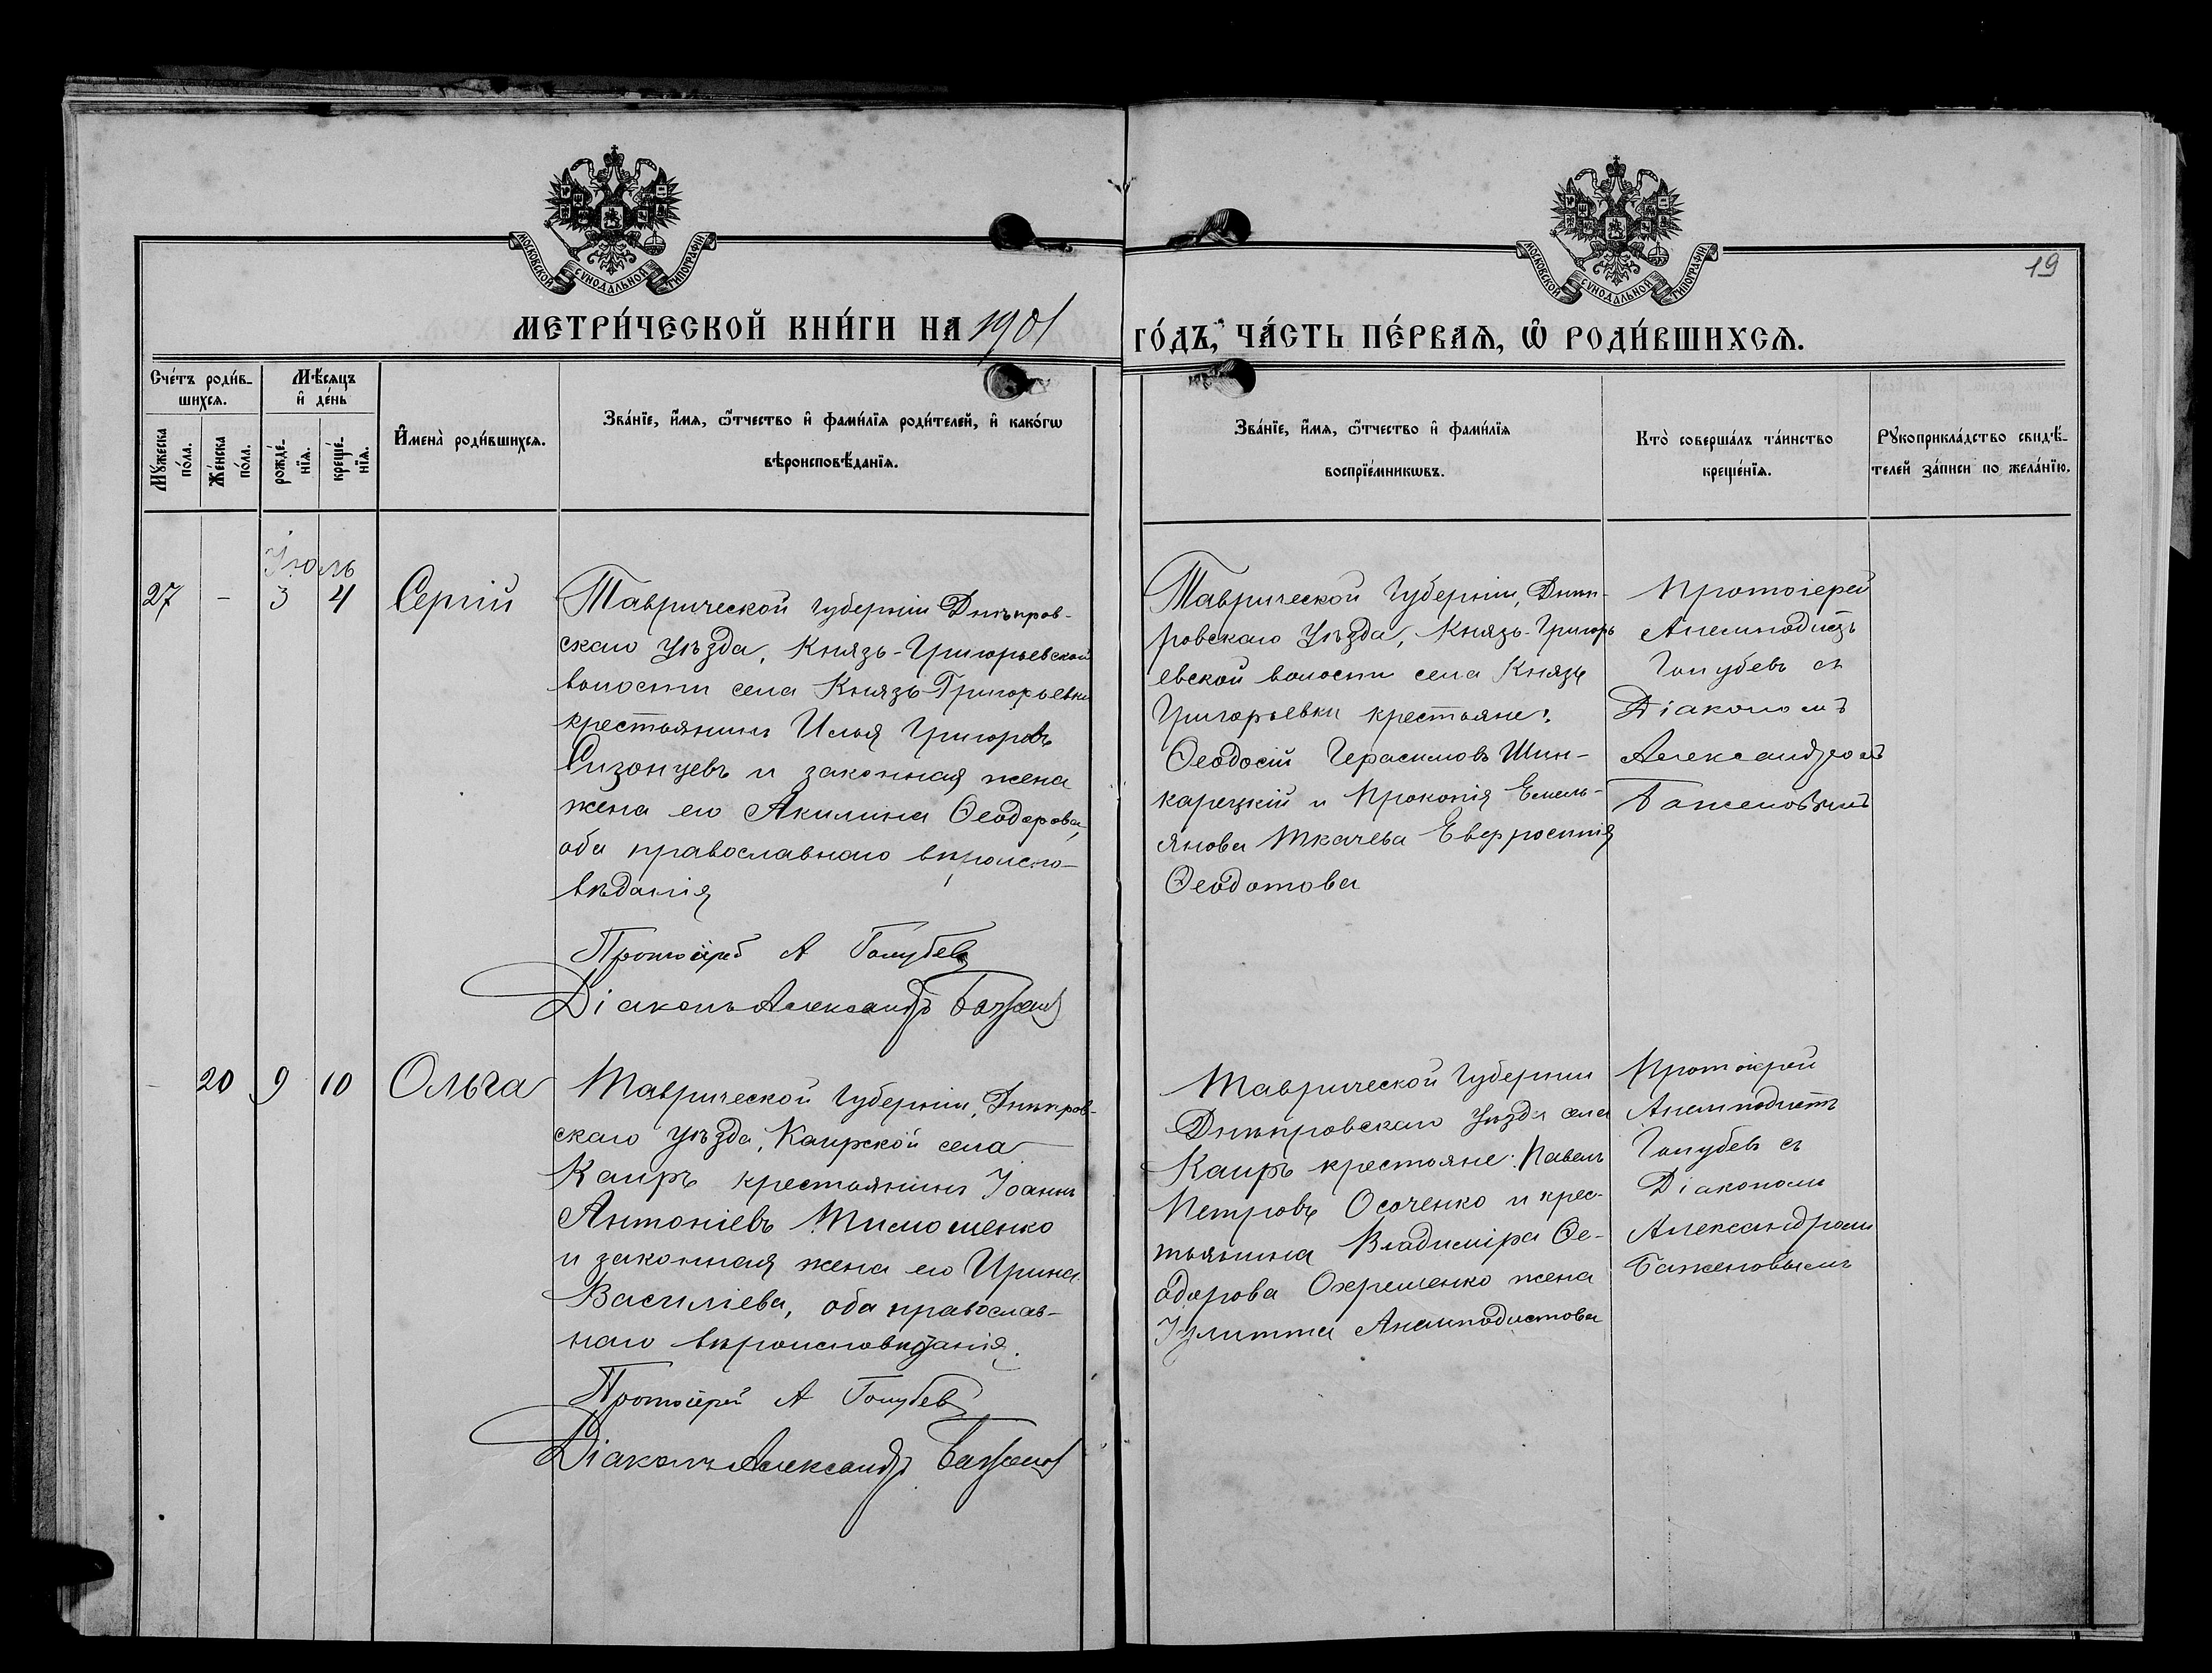 МОСКОВСКОЙ СѴНОДАЛЬНОЙ ТИПОГРАФІИ
МОСКОВСКОЙ СѴНОДАЛЬНОЙ ТИПОГРАФІИ
19
МЕТРИ́ЧЕСКОЙ КНИ́ГИ НА 1901
ГО́ДЪ, ЧА́СТЬ ПЕ́РВАѦ, Ѡ҆ РОДИ́ВШИХСѦ.
Сче́тъ роди́в-
шихсѧ.
Мѣ́сѧцъ
и҆ де́нь
Мꙋ́жеска
по́ла.
Же́нска
по́ла.
рожде́-
нїѧ.
креще́-
нїѧ.
И҆мена̀ роди́вшихсѧ.
Зва́нїе, и҆́мѧ, ѻ҆́тчество и҆ фами́лїѧ роди́телей, и҆ како́гѡ
вѣроисповѣ́данїѧ.
Зва́нїе, и҆́мѧ, ѻ҆́тчество и҆ фами́лїѧ
воспрїе́мникѡвъ.
Кто̀ соверша́лъ та́инство
креще́нїѧ.
Рꙋкоприкла́дство свидѣ́-
телей за́писи по жела́нїю.
Іюль
27 - 3 4 Сергій
Таврической губерніи Днѣпров-
скаго уѣзда, Князь-Григорьевской
волости села Князь-Григорьевки
крестьянинъ Илья Григоровъ
Сизонцевъ и законная жена
жена его Акилина Ѳеодорова,
оба православнаго вѣроиспо-
вѣданія
Протоіерей А Голубев
Діаконъ Александръ Баженов
Таврической Губерніи, Днѣп-
ровскаго Уѣзда, Князь-Григорь
евской волости села Князь
Григорьевки крестьяне:
Ѳеодосій Герасимовъ Шин-
карецкій и Прокопія Емель-
янова Ткачева Евфросинія
Ѳеодотова
Протоіерей
Анемподистъ
Голубевъ съ
Діакономъ
Александромъ
Баженовымъ
- 20 9 10 Ольга
Таврической Губерніи, Днѣпров-
скаго уѣзда, Каирской села
Каиръ крестьянинъ Іоаннъ
Антоніевъ Тимошенко
и законная жена его Ирина
Василіева, оба православ-
наго вѣроисповѣданія.
Протоіерей А Голубев
Діаконъ Александръ Баженов
Таврической Губерніи
Днѣпровскаго Уѣзда села
Каиръ крестьяне: Павелъ
Петровъ Осоченко и крес-
тьянина Владиміра Ѳе-
одорова Охременко жена
Іулитта Анемподистова
Протоіерей
Анемподистъ
Голубевъ съ
Діакономъ
Александромъ
Баженовымъ